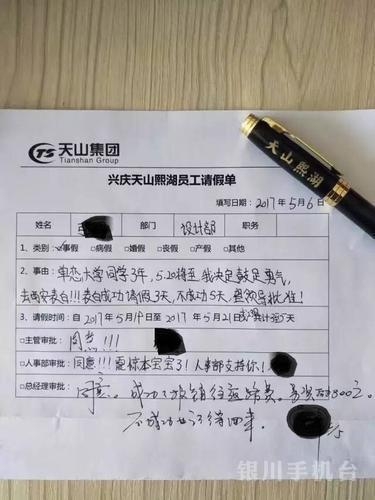 TS 天山集团
Tianshan Group
天山熙湖
兴庆天山熙湖员工请假单
填写日期：2017年5月6日
姓名 部门 设计部 职务
1、类别：☑事假 □病假 □婚假 □丧假 □产假 □其他
2、事由：单恋大学同学3年，5.20将至，我决定鼓足勇气，
去西安表白!!!表白成功请假3天，不成功5天，望领导批准！
3、请假时间：自2017年5月19日至2017年5月21日 共计3至5天
□主管审批：同意!!!
□人事部审批：同意!!!震惊本宝宝了！人事部支持你！
□总经理审批：同意。成功了报销往返路费。另资助800元。
不成功也记得回来。
银川手机台